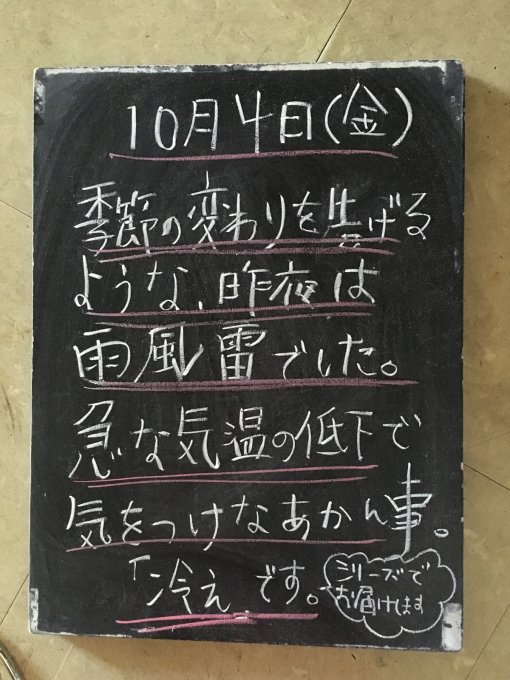 10月4日(金)
季節の変わりを告げる
ような、昨夜は
雨風雷でした。
急な気温の低下で
気をつけなあかん事。
「冷え」です。
シリーズで
お届けします